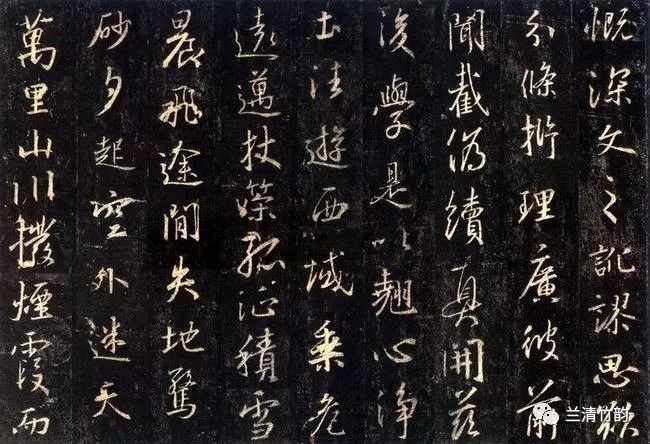 慨深文之訛謬思欲
分條析理廣彼前
聞截偽續真開茲
後學是以翹心淨
土往遊西域乘危
遠邁杖策孤征積雪
晨飛途間失地驚
砂夕起空外迷天
萬里山川撥煙霞而
兰清竹韵